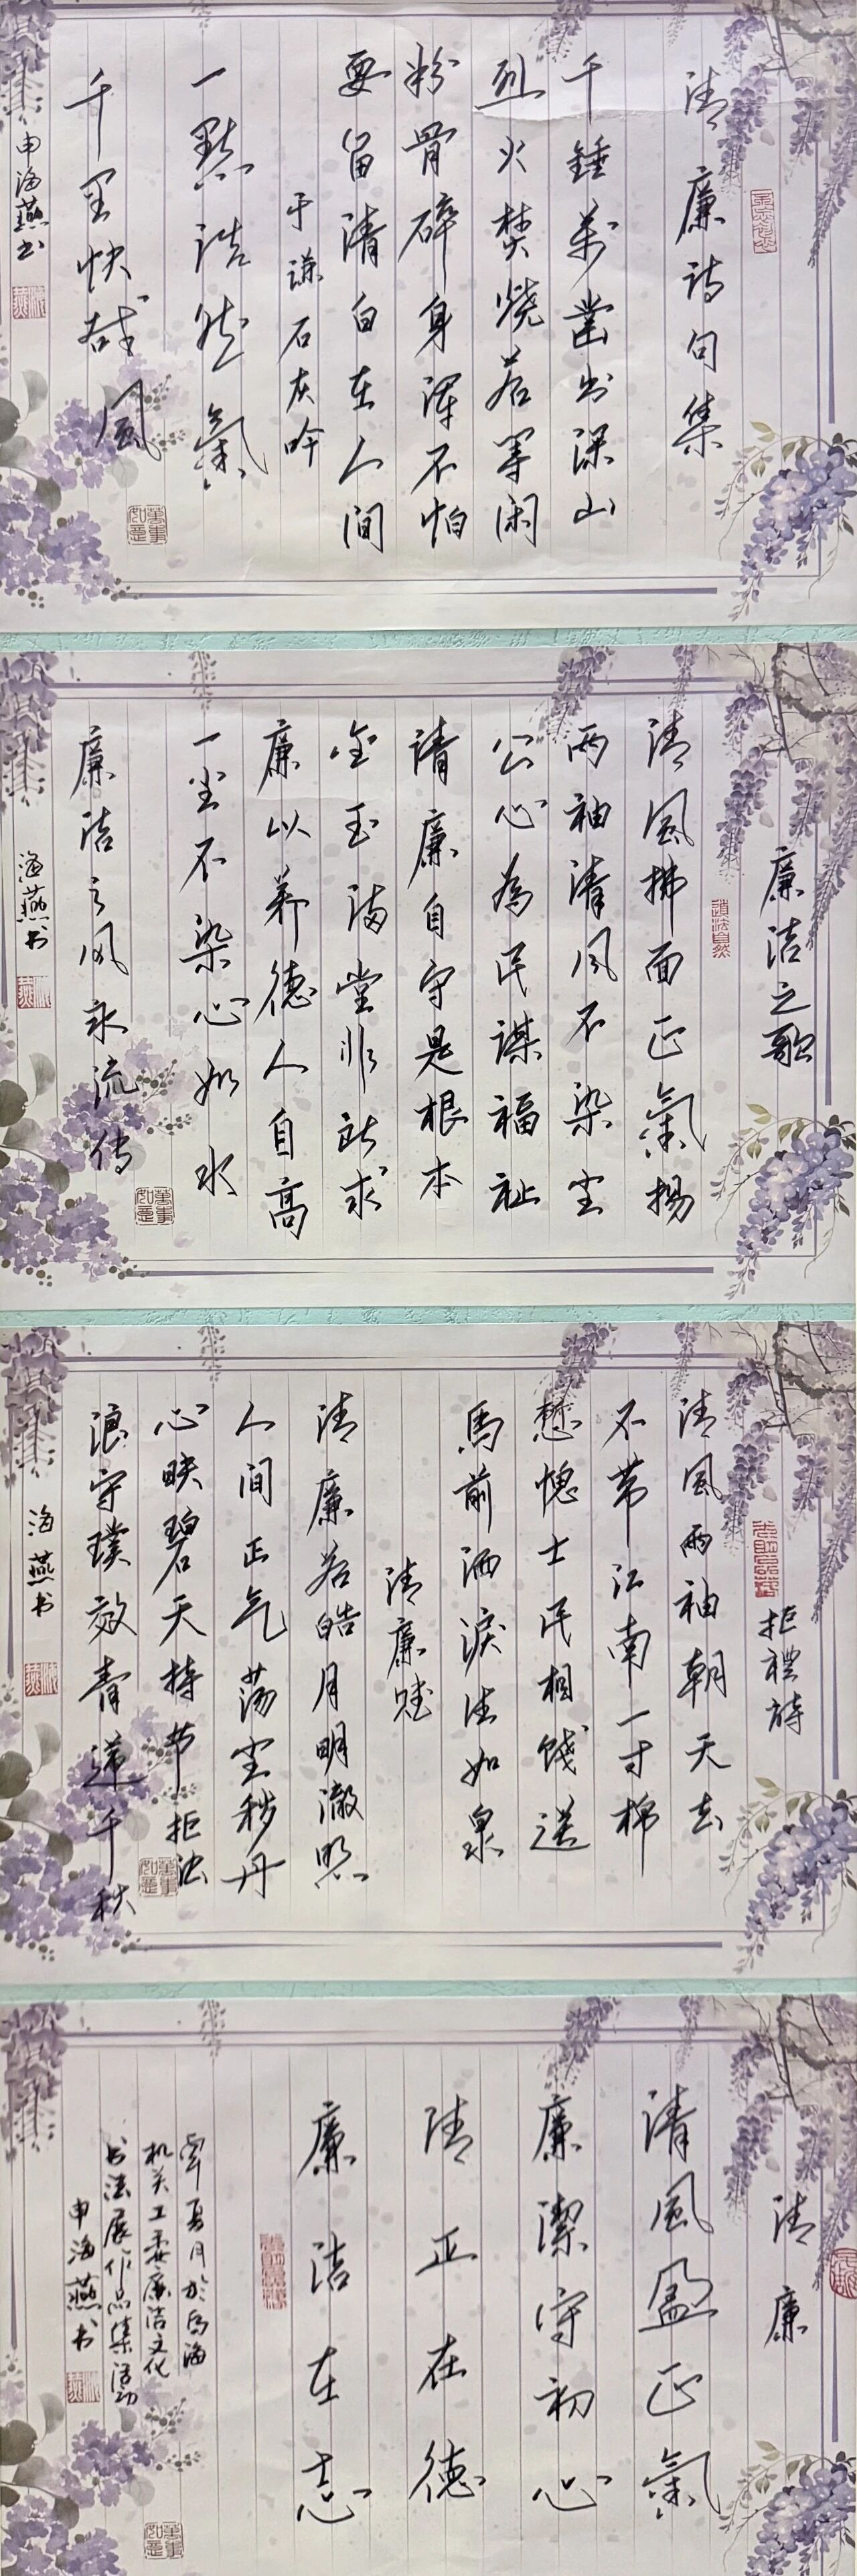 清廉詩句集
千錘萬凿出深山
烈火焚燒若等闲
粉骨碎身渾不怕
要留清白在人间
于谦石灰吟
一點浩然氣
千里快哉風
申海燕书
萬事如意
廉洁之歌
道法自然
清風拂面正氣揚
两袖清风不染尘
公心為民谋福祉
清廉自守是根本
金玉满堂非所求
廉以养德人自高
一尘不染心如水
廉洁之风永流传
海燕书
萬事如意
拒禮詩
清風兩袖朝天去
不带江南一寸棉
慙愧士民相饯送
馬前洒淚注如泉
清廉赋
清廉若皓月明澈照
人间正气荡尘秽丹
心映碧天持节拒浊
浪守璞效青莲千秋
海燕书
萬事如意
清廉
清風盈正氣
廉潔守初心
清正在德
廉洁在志
夏月於乌海
机关工委廉洁文化
书法展作品集活动
申海燕书
萬事如意